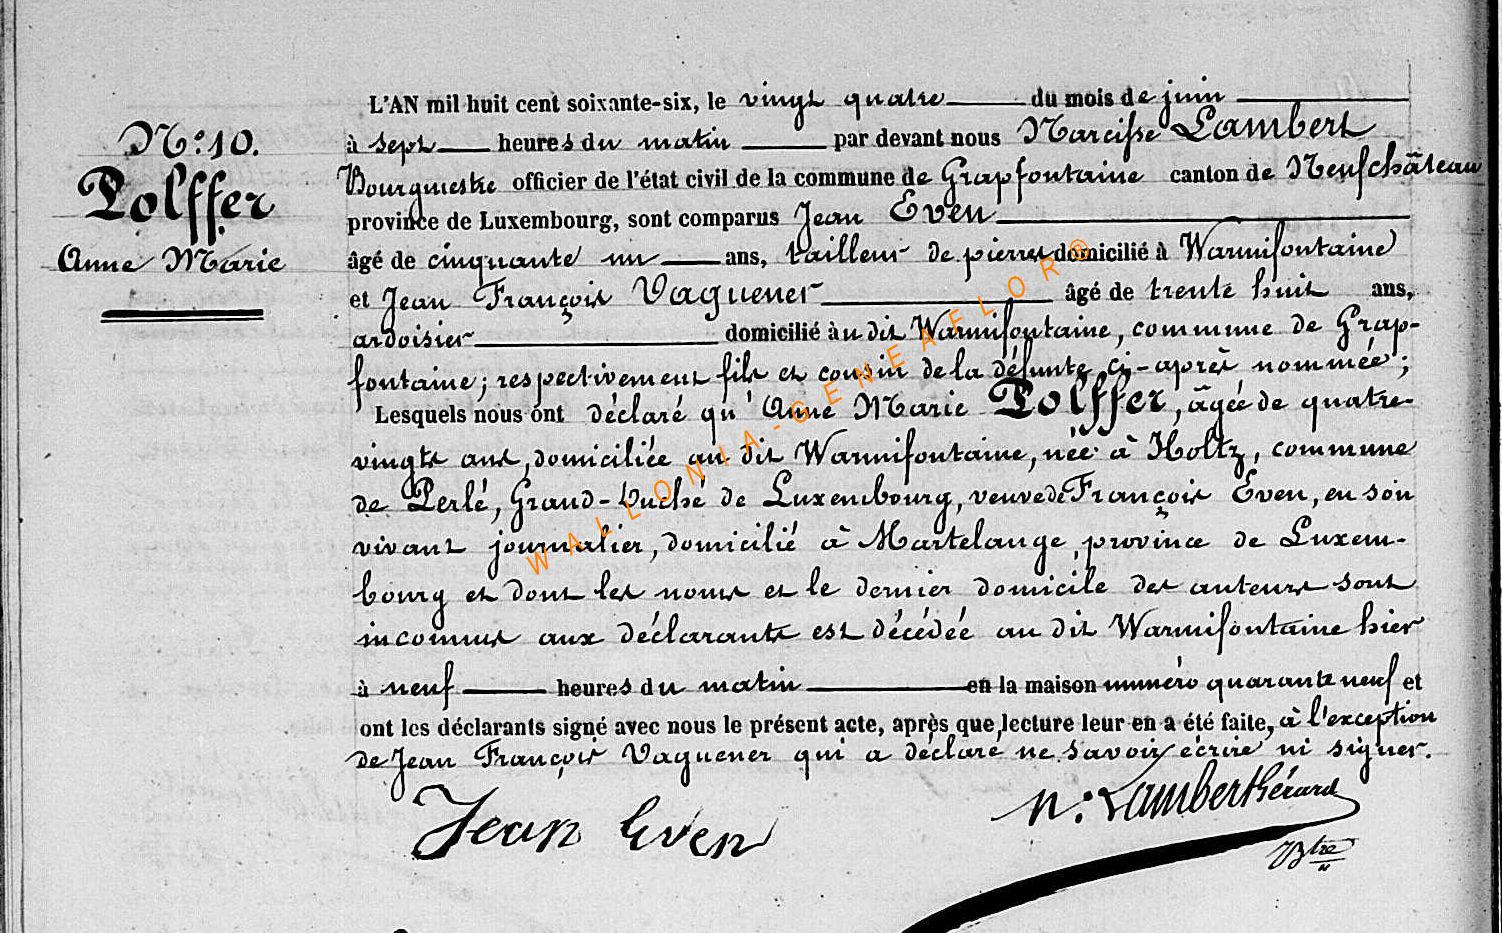 L'AN mil huit cent soixante-six, le vingt quatre du mois de juin
N:o 10. à sept heures du matin par devant nous Narcisse Lambert
Polffer Bourgmestre officier de l'état civil de la commune de Grapfontaine canton de Neufchâteau
province de Luxembourg, sont comparus Jean Even
Anne Marie âgé de cinquante un ans, tailleur de pierres domicilié à Warmifontaine
et Jean François Vaguener âgé de trente huit ans,
ardoisier domicilié au dit Warmifontaine, commune de Grap-
fontaine; respectivement fils et cousin de la défunte ci-après nommée;
Lesquels nous ont déclaré qu'Anne Marie Polffer, âgée de quatre-
vingts ans, domiciliée au dit Warmifontaine, née à Holtz, commune
de Perlé, Grand-Duché de Luxembourg, veuve de François Even, en son
vivant journalier, domicilié à Martelange, province de Luxem-
bourg et dont les noms et le dernier domicile des auteurs sont
inconnus aux déclarants est décédée au dit Warmifontaine hier
à neuf heures du matin en la maison numéro quarante neuf et
ont les déclarants signé avec nous le présent acte, après que lecture leur en a été faite, à l'exception
de Jean François Vaguener qui a déclaré ne savoir écrire ni signer.
Jean Even N: Lambert Hérard
Btre
WALLONIA-GENEAFLOR®